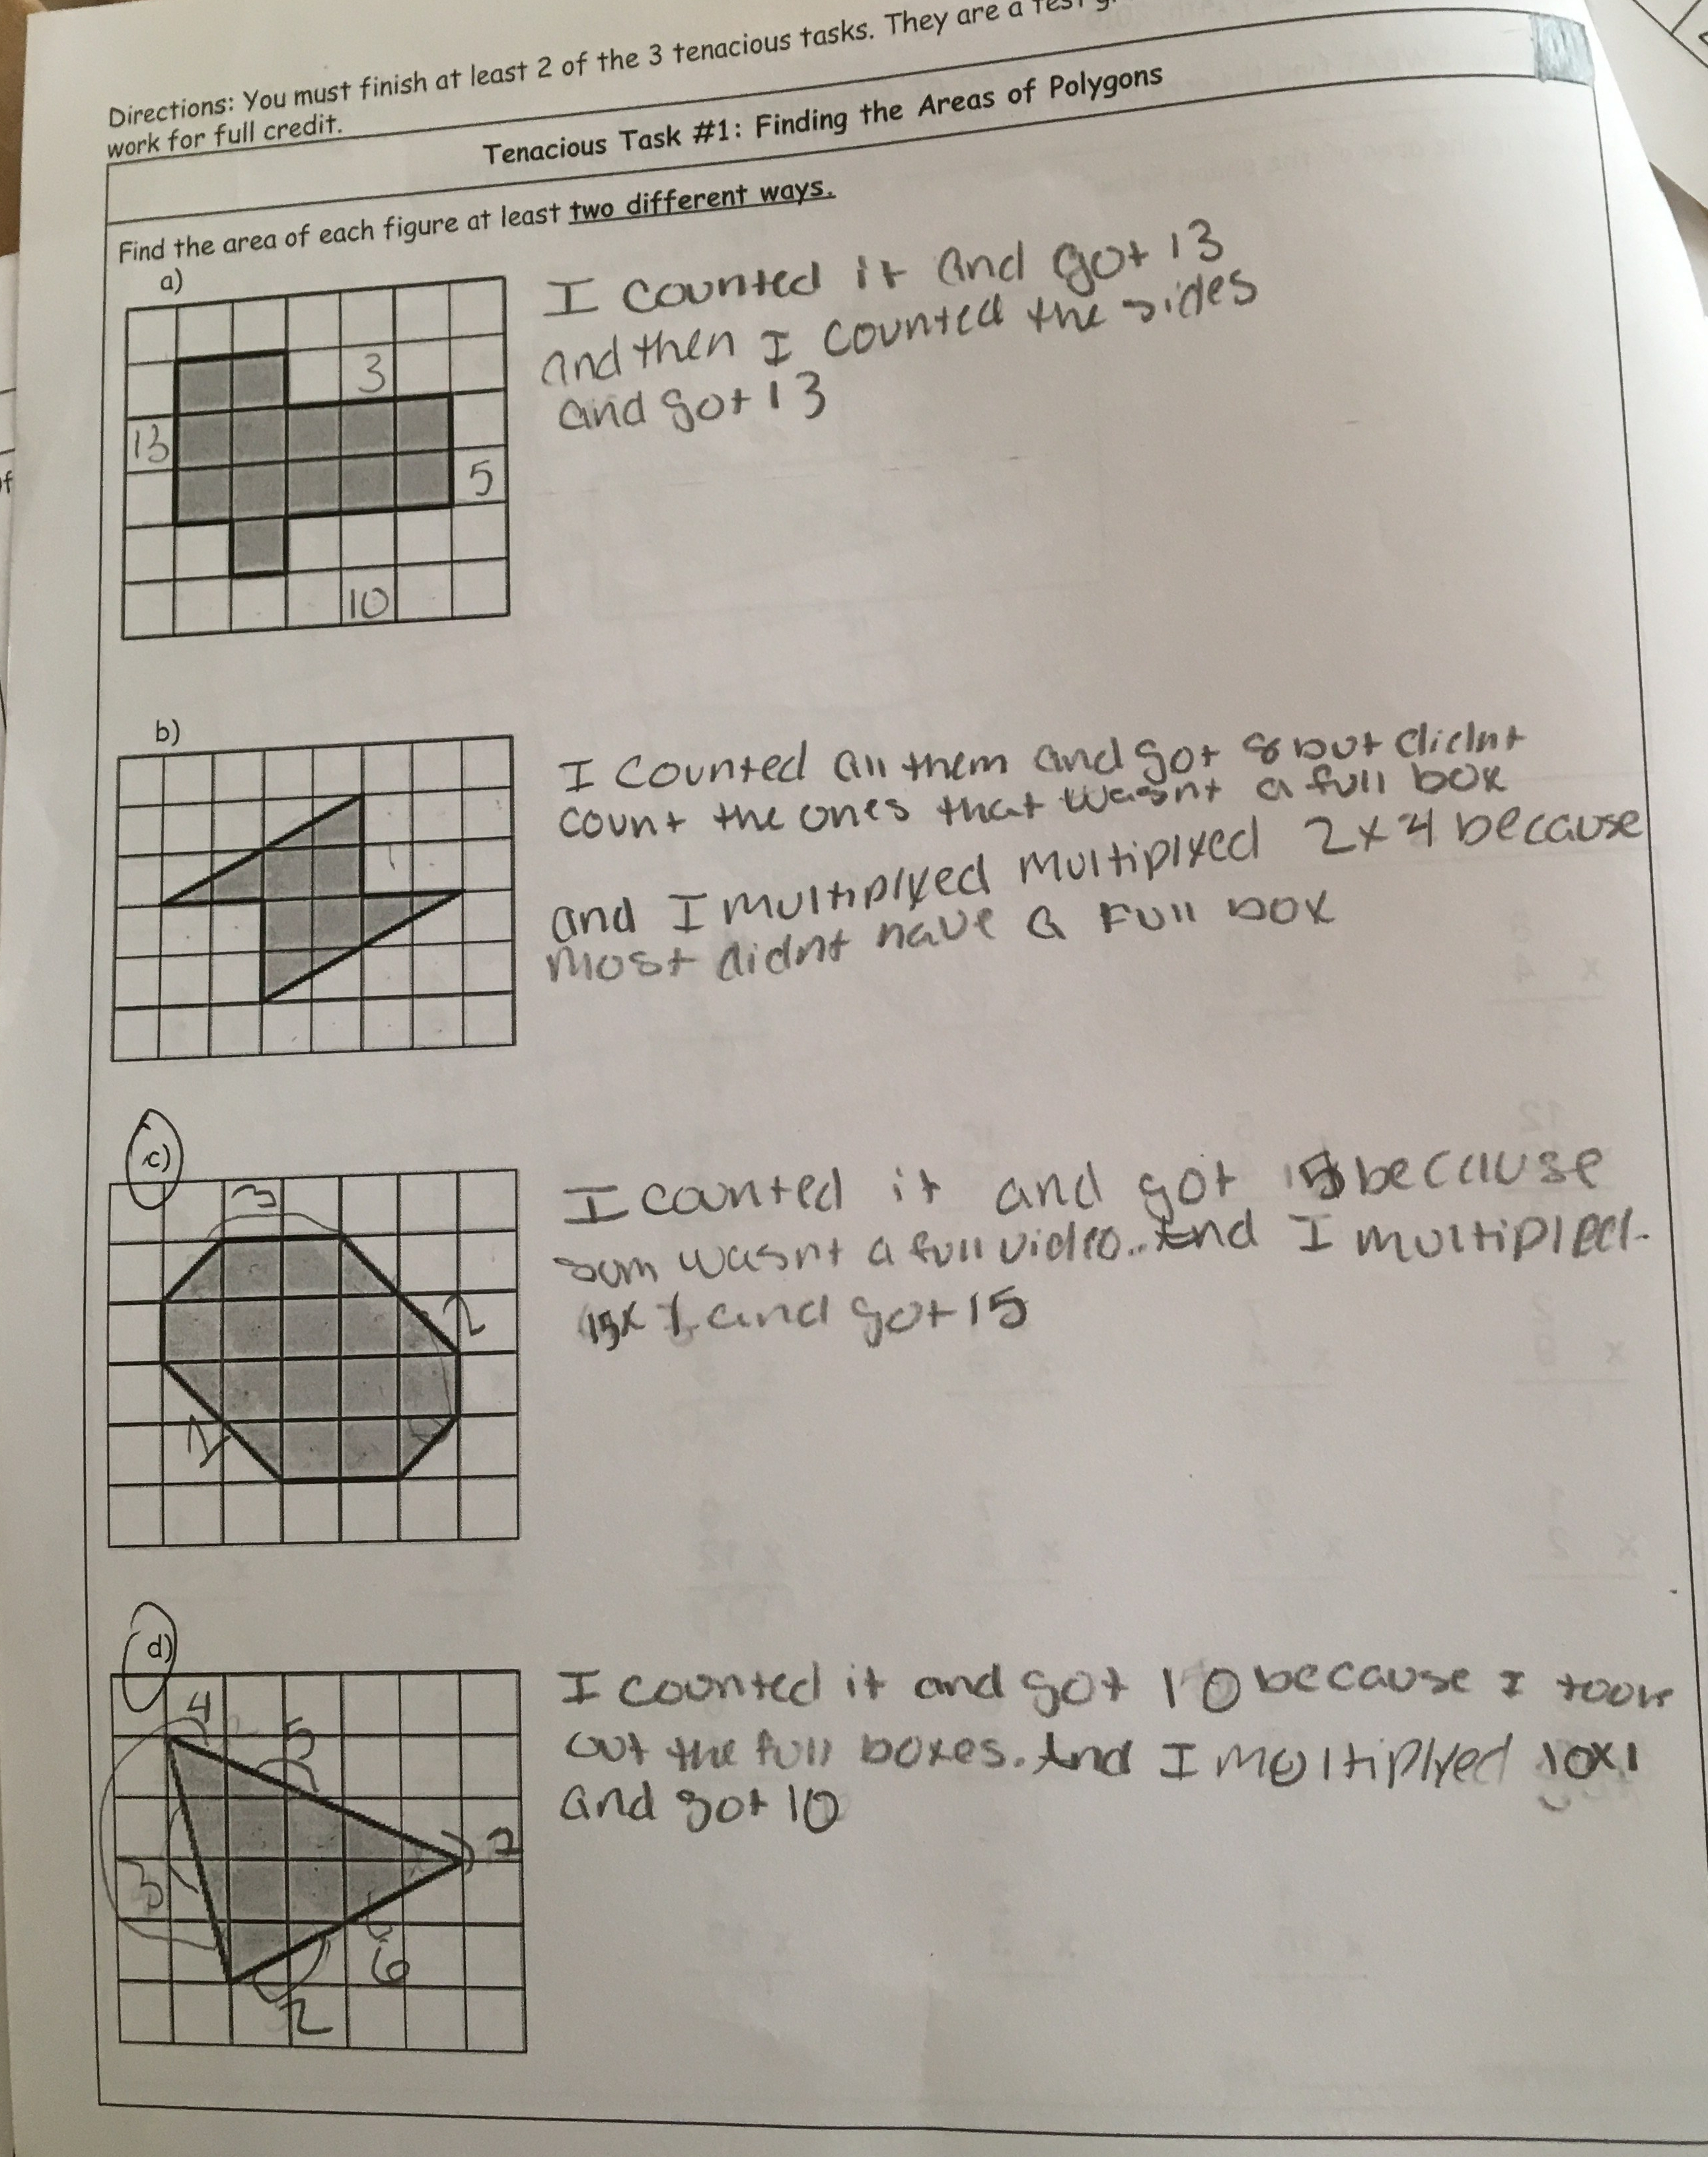 Directions: You must finish at least 2 of the 3 tenacious tasks. They are a test
work for full credit.
Tenacious Task #1: Finding the Areas of Polygons
Find the area of each figure at least two different ways.
a)
I counted it and got 13
and then I counted the sides
and got 13
3
13
5
10
b)
I counted all them and got 8 but didnt
count the ones that wasnt a full box
and I multiplyed multiplyed 2x4 because
most didnt have a full box
c)
I counted it and got 15 because
sum wasnt a full video.. And I multipled
15x1 and got 15
3
2
1
d)
I counted it and got 10 because I took
out the full boxes. And I multiplyed 10x1
and got 10
4
5
3
6
2